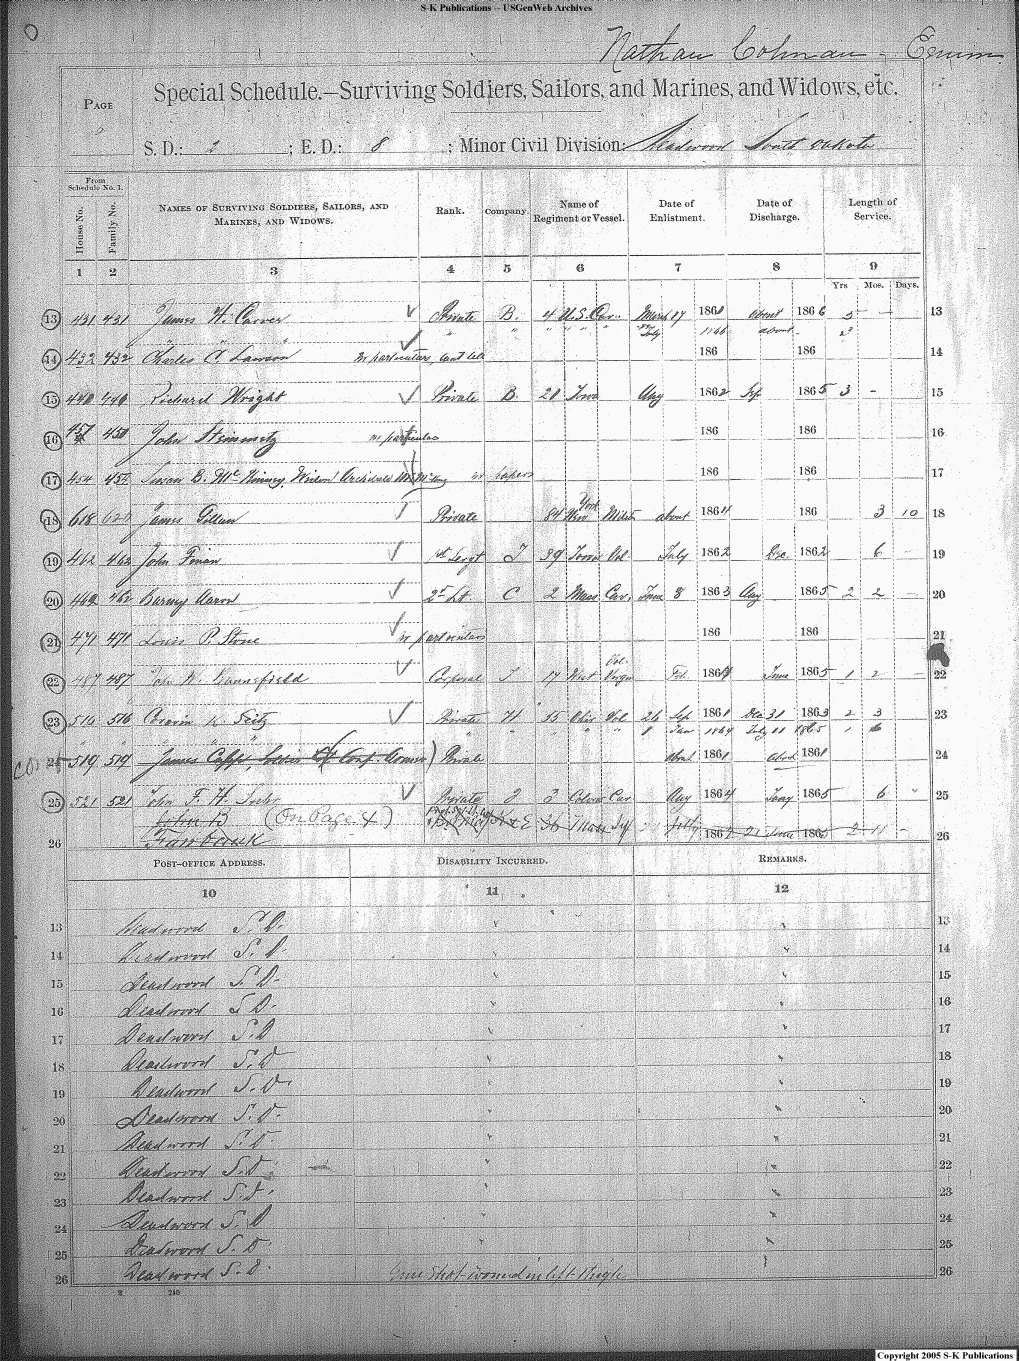 S-K Publications – USGenWeb Archives
Nathan Colman - Enum
Special Schedule.—Surviving Soldiers, Sailors, and Marines, and Widows, etc.
Page
6
S. D.: 2 ; E. D.: 8 ; Minor Civil Division: Deadwood South Dakota
From Schedule No. 1.
House No. Family No. Names of Surviving Soldiers, Sailors, and Marines, and Widows. Rank. Company. Name of Regiment or Vessel. Date of Enlistment. Date of Discharge. Length of Service.
1 2 3 4 5 6 7 8 9
Yrs Mos. Days.
13 431 431 James H. Carver Private B. 4 U.S. Cav. March 17 1861 about 1866 5 - 13
" " " " " " " " July 1866 about
14 432 432 Charles C. Lawson no particulars, cant tell 186 186 14
15 440 440 Richard Wright Private B. 28 Iowa Aug 1862 Sep 1865 3 - 15
16 450 John Steinmetz no particulars 186 186 16
17 454 Susan E. McKinney, Widow Archibald McKinney no papers 186 186 17
18 618 620 James Gillen Private 84 New York Militi about 1864 186 3 10 18
19 462 462 John Finan 1st Sergt I 39 Iowa Vol July 1862 Dec. 1862 6 - 19
20 462 462 Barney Aaron 2d Lt C 2 Mass Cav. June 8 1863 Aug 1865 2 2 20
21 471 471 Louis P. Stone no particulars 186 186 21
22 487 487 W. Bonnefield Corporal I 17 West Virgin Vol. Feb. 1864 June 1865 1 2 22
23 516 516 K. Seitz Private H 55 Ohio Vol 26 Sep 1861 Dec 31 1863 2 3 23
" " " " " " 1 Jan 1864 July 11 1865 1 6
24 519 519 James Capps, Soldier of Conf. Private about 1861 about 1861 24
25 521 521 John F. H. Private 3 Color Cav. Aug 1864 Jany 1865 6 " 25
John B (On Page 4) E 36 Mass Inf July 1862 21 June 1865 2 11 - 26
26 Fairbank
Post-office Address. Disability Incurred. Remarks.
10 11 12
13 Deadwood S. D. " " 13
14 Deadwood S. D. " " 14
15 Deadwood S. D. " " 15
16 Deadwood S. D. " " 16
17 Deadwood S. D " " 17
18 Deadwood S. D " " 18
19 Deadwood S. D. " " 19
20 Deadwood S. D. " " 20
21 Deadwood S. D. " " 21
22 Deadwood S. D. " " 22
23 Deadwood S. D. " " 23
24 Deadwood S. D " " 24
25 Deadwood S. D " " 25
26 Deadwood S. D. Gun shot wound in left thigh 26
2 240
Copyright 2005 S-K Publications